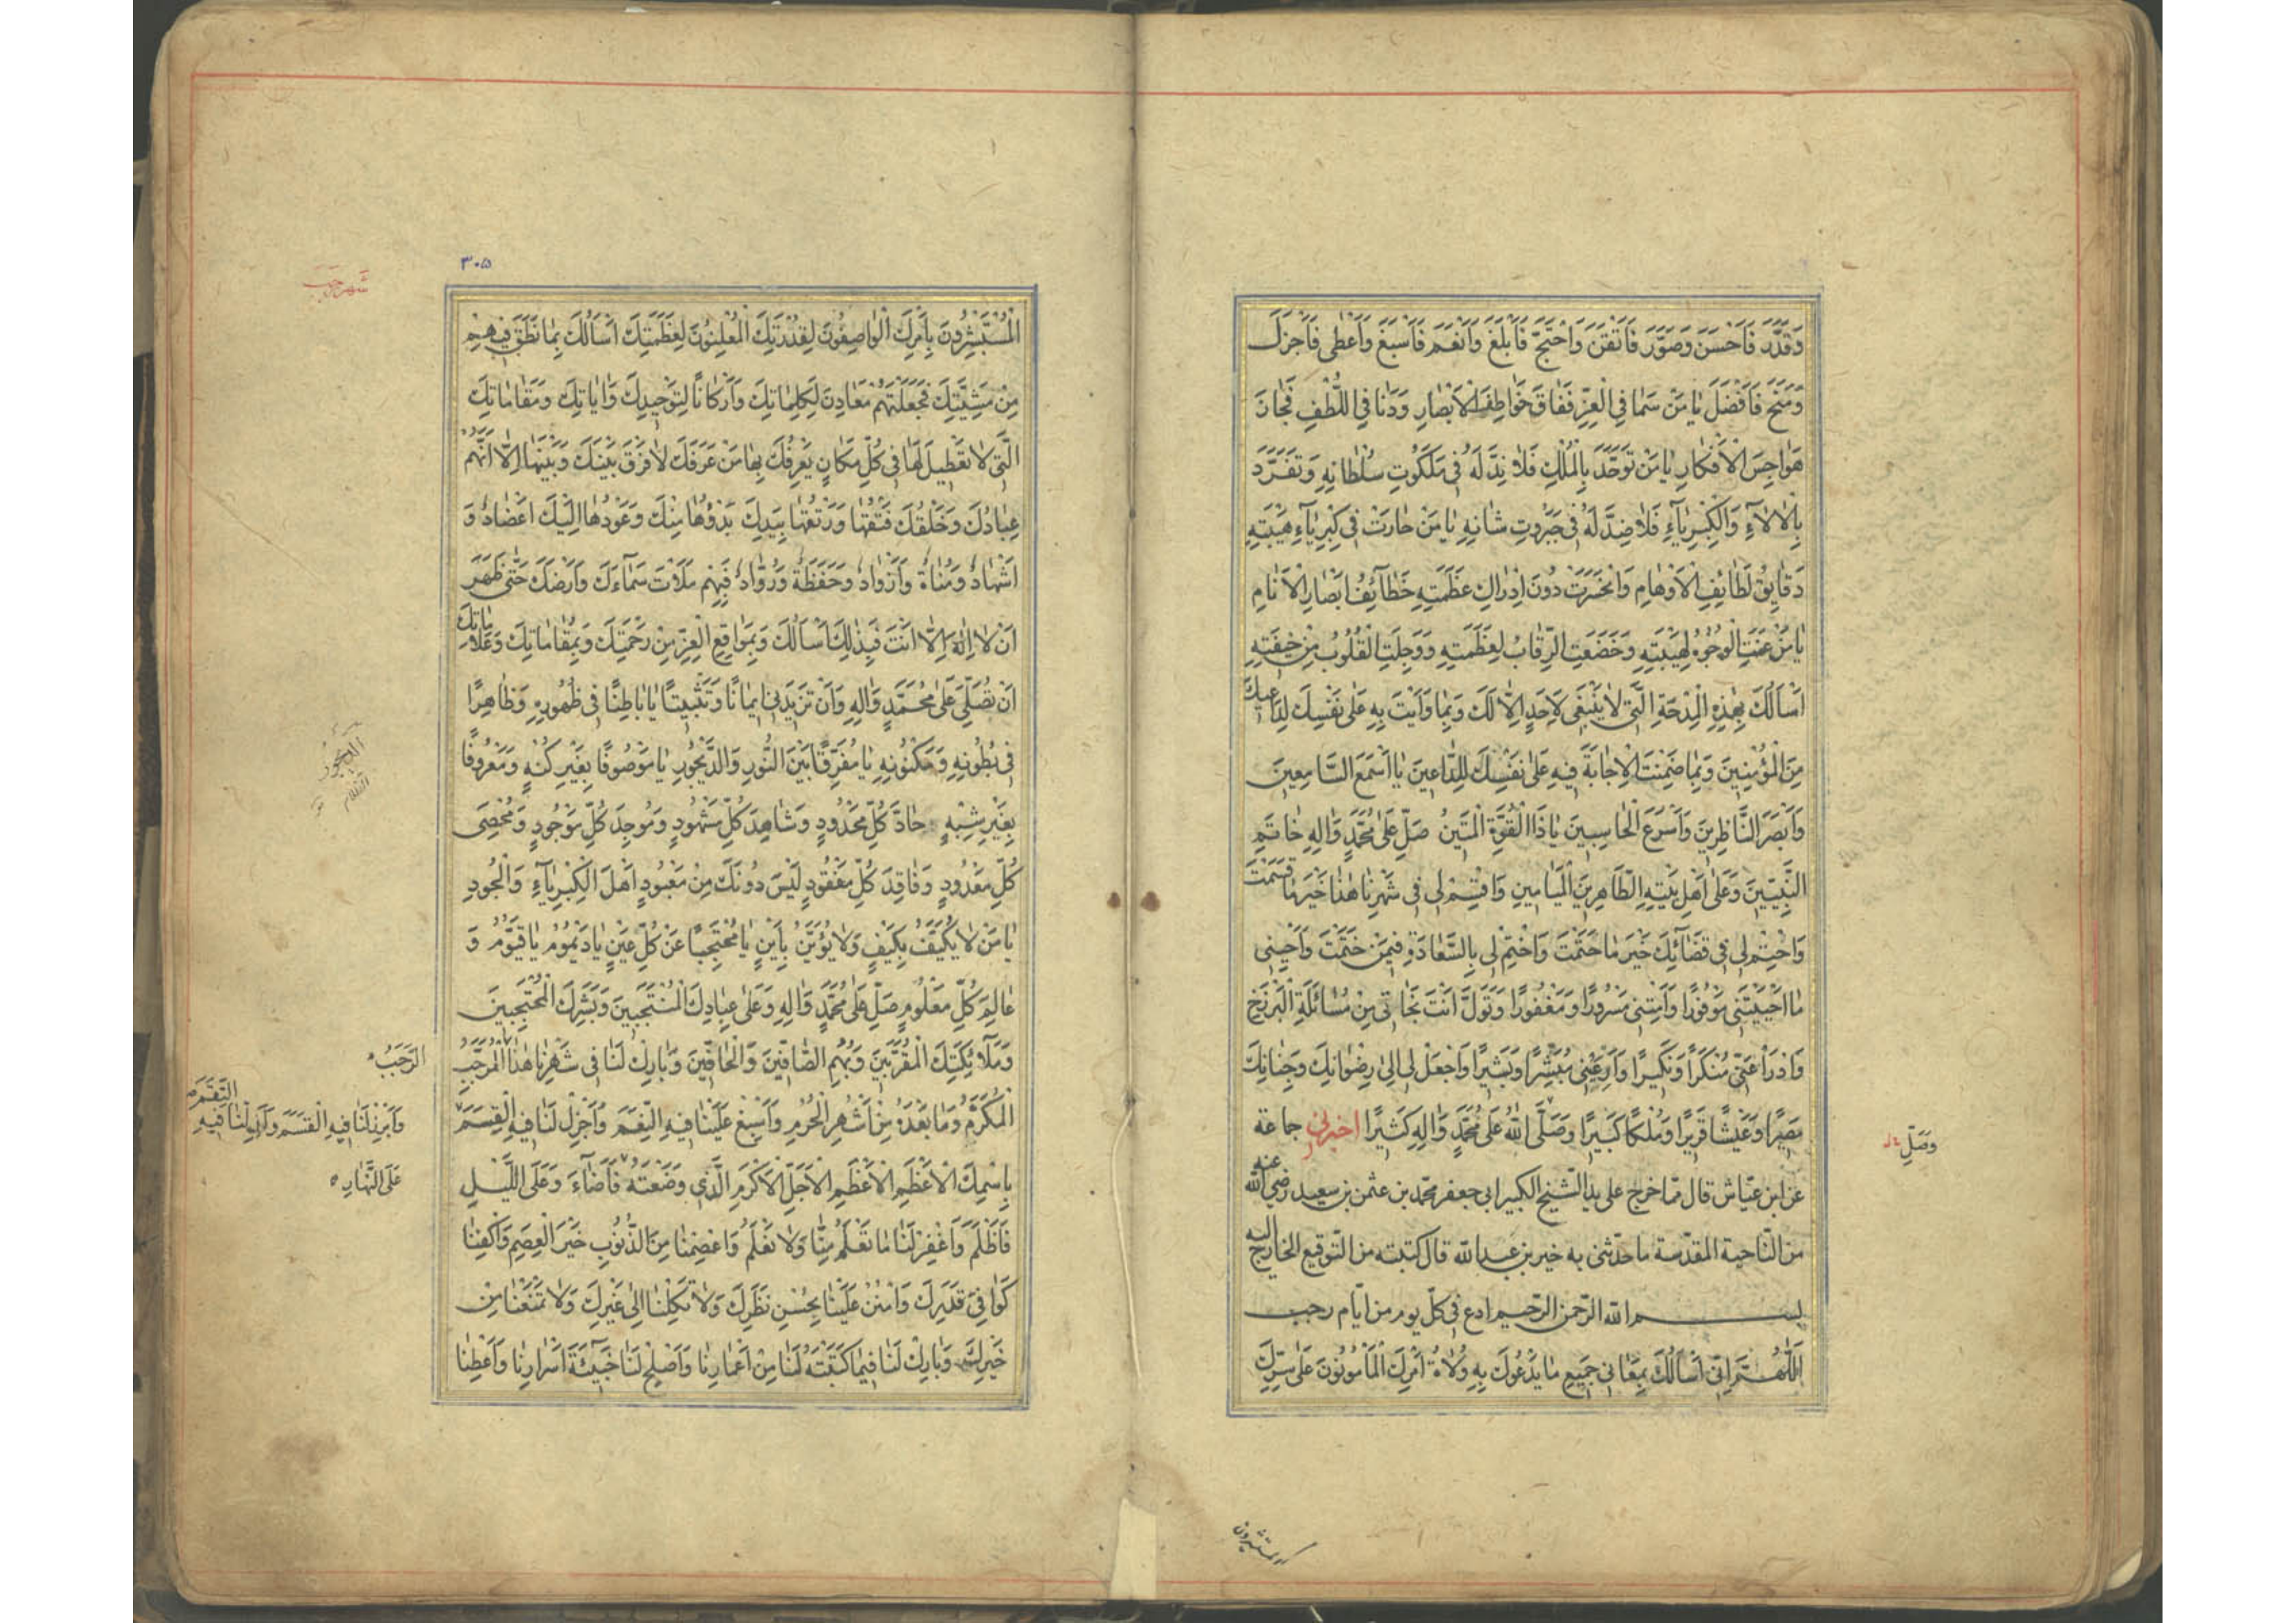 وَقَدَّرَ فَاَحْسَنَ وَصَوَّرَ فَاَتْقَنَ وَاحْتَجَّ فَاَبْلَغَ وَاَنْعَمَ فَاَسْبَغَ وَاَعْطٰى فَاَجْزَلَ
وَمَنَحَ فَاَفْضَلَ يٰا مَنْ سَمٰا فِي الْعِزِّ فَفٰاقَ خَوٰاطِفَ الْاَبْصٰارِ وَدَنٰا فِي اللُّطْفِ فَجٰازَ
هَوٰاجِسَ الْاَفْكٰارِ يٰا مَنْ تَوَحَّدَ بِالْمُلْكِ فَلٰا نِدَّ لَهُ فِي مَلَكُوتِ سُلْطٰانِهِ وَتَفَرَّدَ
بِالْاٰلٰاءِ وَالْكِبْرِيٰآءِ فَلٰا ضِدَّ لَهُ فِي جَبَرُوتِ شٰانِهِ يٰا مَنْ حٰارَتْ فِي كِبْرِيٰآءِ هَيْبَتِهِ
دَقٰايِقُ لَطٰائِفِ الْاَوْهٰامِ وَانْحَسَرَتْ دُونَ اِدْرٰاكِ عَظَمَتِهِ خَطٰآئِفُ اَبْصٰارِ الْاَنٰامِ
يٰا مَنْ عَنَتِ الْوُجُوهُ لِهَيْبَتِهِ وَخَضَعَتِ الرِّقٰابُ لِعَظَمَتِهِ وَوَجِلَتِ الْقُلُوبُ مِنْ خِيفَتِهِ
اَسْاَلُكَ بِهٰذِهِ الْمِدْحَةِ الَّتِي لٰا يَنْبَغِي لِاَحَدٍ اِلّٰا لَكَ وَبِمٰا وَاَيْتَ بِهِ عَلٰى نَفْسِكَ لِدٰاعِيكَ
مِنَ الْمُؤْمِنِينَ وَبِمٰا ضَمِنْتَ الْاِجٰابَةَ فِيهِ عَلٰى نَفْسِكَ لِلدّٰاعِينَ يٰا اَسْمَعَ السّٰامِعِينَ
وَاَبْصَرَ النّٰاظِرِينَ وَاَسْرَعَ الْحٰاسِبِينَ يٰا ذَا الْقُوَّةِ الْمَتِينُ صَلِّ عَلٰى مُحَمَّدٍ وَاٰلِهِ خٰاتَمِ
النَّبِيّينَ وَعَلٰى اَهْلِ بَيْتِهِ الطّٰاهِرِينَ الْمَيٰامِينِ وَاقْسِمْ لِي فِي شَهْرِنٰا هٰذٰا خَيْرَ مٰا قَسَمْتَ
وَاحْتِمْ لِي فِي قَضٰآئِكَ خَيْرَ مٰا حَتَمْتَ وَاخْتِمْ لِي بِالسَّعٰادَةِ فِيمَنْ خَتَمْتَ وَاَحْيِنِي
مٰا اَحْيَيْتَنِي مَوْفُورًا وَاَمِتْنِي مَسْرُورًا وَمَغْفُورًا وَتَوَلَّ اَنْتَ نَجٰاتِي مِنْ مُسٰائَلَةِ الْبَرْزَخِ
وَادْرَاْ عَنِّي مُنْكَرًا وَنَكِيرًا وَاَرِعَيْنِي مُبَشِّرًا وَبَشِيرًا وَاجْعَلْ لِي اِلٰى رِضْوٰانِكَ وَجِنٰانِكَ
مَصِيرًا وَعَيْشًا قَرِيرًا وَمُلْكًا كَبِيرًا وَصَلَّى اللّٰهُ عَلٰى مُحَمَّدٍ وَاٰلِهِ كَثِيرًا اخبرنى جماعة
وَصَلِّ
عن ابن عيّاش قال ممّا خرج على يد الشّيخ الكبير ابى جعفر محمّد بن عثمن بن سعيد رضى اللّه عنه
من النّاحية المقدّسة ما حدّثنى به خير بن عبد اللّه قال كتبته من التّوقيع الخارج اليه
بسم اللّه الرّحمن الرّحيم ادع فى كلّ يوم من ايّام رجب
اَللّٰهُمَّ اِنّي اَسْاَلُكَ بِمَعٰانِي جَمِيعِ مٰا يَدْعُوكَ بِهِ وُلٰاةُ اَمْرِكَ الْمَأْمُونُونَ عَلٰى سِرِّكَ
المستبشرون
٣٠٥
شهر رجب
الْمُسْتَبْشِرُونَ بِاَمْرِكَ الْوٰاصِفُونَ لِقُدْرَتِكَ الْمُعْلِنُونَ لِعَظَمَتِكَ اَسْاَلُكَ بِمٰا نَطَقَ فِيهِمْ
مِنْ مَشِيَّتِكَ فَجَعَلْتَهُمْ مَعٰادِنَ لِكَلِمٰاتِكَ وَاَرْكٰانًا لِتَوْحِيدِكَ وَاٰيٰاتِكَ وَمَقٰامٰاتِكَ
الَّتِي لٰا تَعْطِيلَ لَهٰا فِي كُلِّ مَكٰانٍ يَعْرِفُكَ بِهٰا مَنْ عَرَفَكَ لٰا فَرْقَ بَيْنَكَ وَبَيْنَهٰا اِلّٰا اَنَّهُمْ
عِبٰادُكَ وَخَلْقُكَ فَتْقُهٰا وَرَتْقُهٰا بِيَدِكَ بَدْؤُهٰا مِنْكَ وَعَوْدُهٰا اِلَيْكَ اَعْضٰادٌ وَ
اَشْهٰادٌ وَمُنٰاةٌ وَاَزْوٰادٌ وَحَفَظَةٌ وَرُوّٰادٌ فَبِهِمْ مَلَاْتَ سَمٰآءَكَ وَاَرْضَكَ حَتّٰى ظَهَرَ
اَنْ لٰا اِلٰهَ اِلّٰا اَنْتَ فَبِذٰلِكَ اَسْاَلُكَ وَبِمَوٰاقِعِ الْعِزِّ مِنْ رَحْمَتِكَ وَبِمَقٰامٰاتِكَ وَعَلٰامٰاتِكَ
اَنْ تُصَلِّيَ عَلٰى مُحَمَّدٍ وَاٰلِهِ وَاَنْ تَزِيدَنِي اِيمٰانًا وَتَثْبِيتًا يٰا بٰاطِنًا فِي ظُهُورِهِ وَظٰاهِرًا
فِي بُطُونِهِ وَمَكْنُونِهِ يٰا مُفَرِّقًا بَيْنَ النُّورِ وَالدَّيْجُورِ يٰا مَوْصُوفًا بِغَيْرِ كُنْهٍ وَمَعْرُوفًا
الديجور
الظلام
بِغَيْرِ شِبْهٍ حٰادَّ كُلِّ مَحْدُودٍ وَشٰاهِدَ كُلِّ مَشْهُودٍ وَمُوجِدَ كُلِّ مَوْجُودٍ وَمُحْصِيَ
كُلِّ مَعْدُودٍ وَفٰاقِدَ كُلِّ مَفْقُودٍ لَيْسَ دُونَكَ مِنْ مَعْبُودٍ اَهْلَ الْكِبْرِيٰآءِ وَالْجُودِ
يٰا مَنْ لٰا يُكَيَّفُ بِكَيْفٍ وَلٰا يُؤَيَّنُ بِاَيْنٍ يٰا مُحْتَجِبًا عَنْ كُلِّ عَيْنٍ يٰا دَيْمُومُ يٰا قَيُّومُ وَ
عٰالِمَ كُلِّ مَعْلُومٍ صَلِّ عَلٰى مُحَمَّدٍ وَاٰلِهِ وَعَلٰى عِبٰادِكَ الْمُنْتَجَبِينَ وَبَشَرِكَ الْمُحْتَجِبِينَ
وَمَلٰآئِكَتِكَ الْمُقَرَّبِينَ وَبُهْمِ الصّٰافِّينَ وَالْحٰافِّينَ وَبٰارِكْ لَنٰا فِي شَهْرِنٰا هٰذَا الْمُرَجَّبِ
الرَّجَبِ
الْمُكَرَّمِ وَمٰا بَعْدَهُ مِنْ اَشْهُرِ الْحُرُمِ وَاَسْبِغْ عَلَيْنٰا فِيهِ النِّعَمَ وَاَجْزِلْ لَنٰا فِيهِ الْقِسَمَ
وَاَبْرِرْ لَنٰا فِيهِ الْقَسَمَ
بِاسْمِكَ الْاَعْظَمِ الْاَعْظَمِ الْاَجَلِّ الْاَكْرَمِ الَّذِي وَضَعْتَهُ فَاَضٰآءَ وَعَلَى اللَّيْلِ
عَلَى النَّهٰارِ
فَاَظْلَمَ وَاغْفِرْ لَنٰا مٰا تَعْلَمُ مِنّٰا وَلٰا نَعْلَمُ وَاعْصِمْنٰا مِنَ الذُّنُوبِ خَيْرَ الْعِصَمِ وَاكْفِنٰا
كَوٰافِيَ قَدَرِكَ وَامْنُنْ عَلَيْنٰا بِحُسْنِ نَظَرِكَ وَلٰا تَكِلْنٰا اِلٰى غَيْرِكَ وَلٰا تَمْنَعْنٰا مِنْ
خَيْرِكَ وَبٰارِكْ لَنٰا فِيمٰا كَتَبْتَهُ لَنٰا مِنْ اَعْمٰارِنٰا وَاَصْلِحْ لَنٰا خَبِيئَةَ اَسْرٰارِنٰا وَاَعْطِنٰا